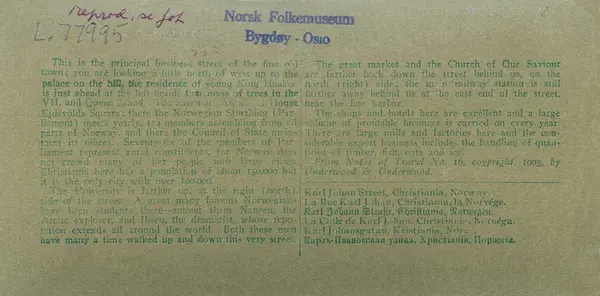 reprod. se fot
L. 77995
Norsk Folkemuseum
Bygdøy - Oslo
This is the principal business street of the fine old
town; you are looking a little north of west up to the
palace on the hill, the residence of young King Haakon
is just ahead at the left beside that mass of trees in the
Eidsvolds Square; there the Norwegian Storthing (Par-
liament) meets yearly, 114 members assembling from all
parts of Norway, and there the Council of State main-
tains its offices. Seventy-six of the members of Par-
liament represent rural constituents, for Norway does
not crowd many of her people into large cities.
Christiania here has a population of about 150,000 but
it is the only city with over 100,000.
The University is farther up, at the right (north)
side of the street. A great many famous Norwegians
have been students there—among them Nansen, the
Arctic explorer, and Ibsen, the dramatist, whose repu-
tation extends all around the world. Both these men
have many a time walked up and down this very street.
The great market and the Church of Our Saviour
are farther back down the street behind us, on the
north (right) side; the main railway station is still
farther away behind us at the east end of the street,
near the fine harbor.
The shops and hotels here are excellent and a large
volume of profitable business is carried on every year.
There are large mills and factories here and the con-
siderable export business includes the handling of quan-
tities of timber, fish, oats and ice.
From Notes of Travel No. 16, copyright, 1905, by
Underwood & Underwood.
Karl Johan Street, Christiania, Norway.
La Rue Karl Johan, Christiania, la Norvège.
Karl Johann Straße, Christiania, Norwegen.
La Calle de Karl Johan, Christiania, Noruega.
Karl Johansgatan, Kristiania, Norge.
Карлъ-Ивановская улица, Христіанія, Норвегія.